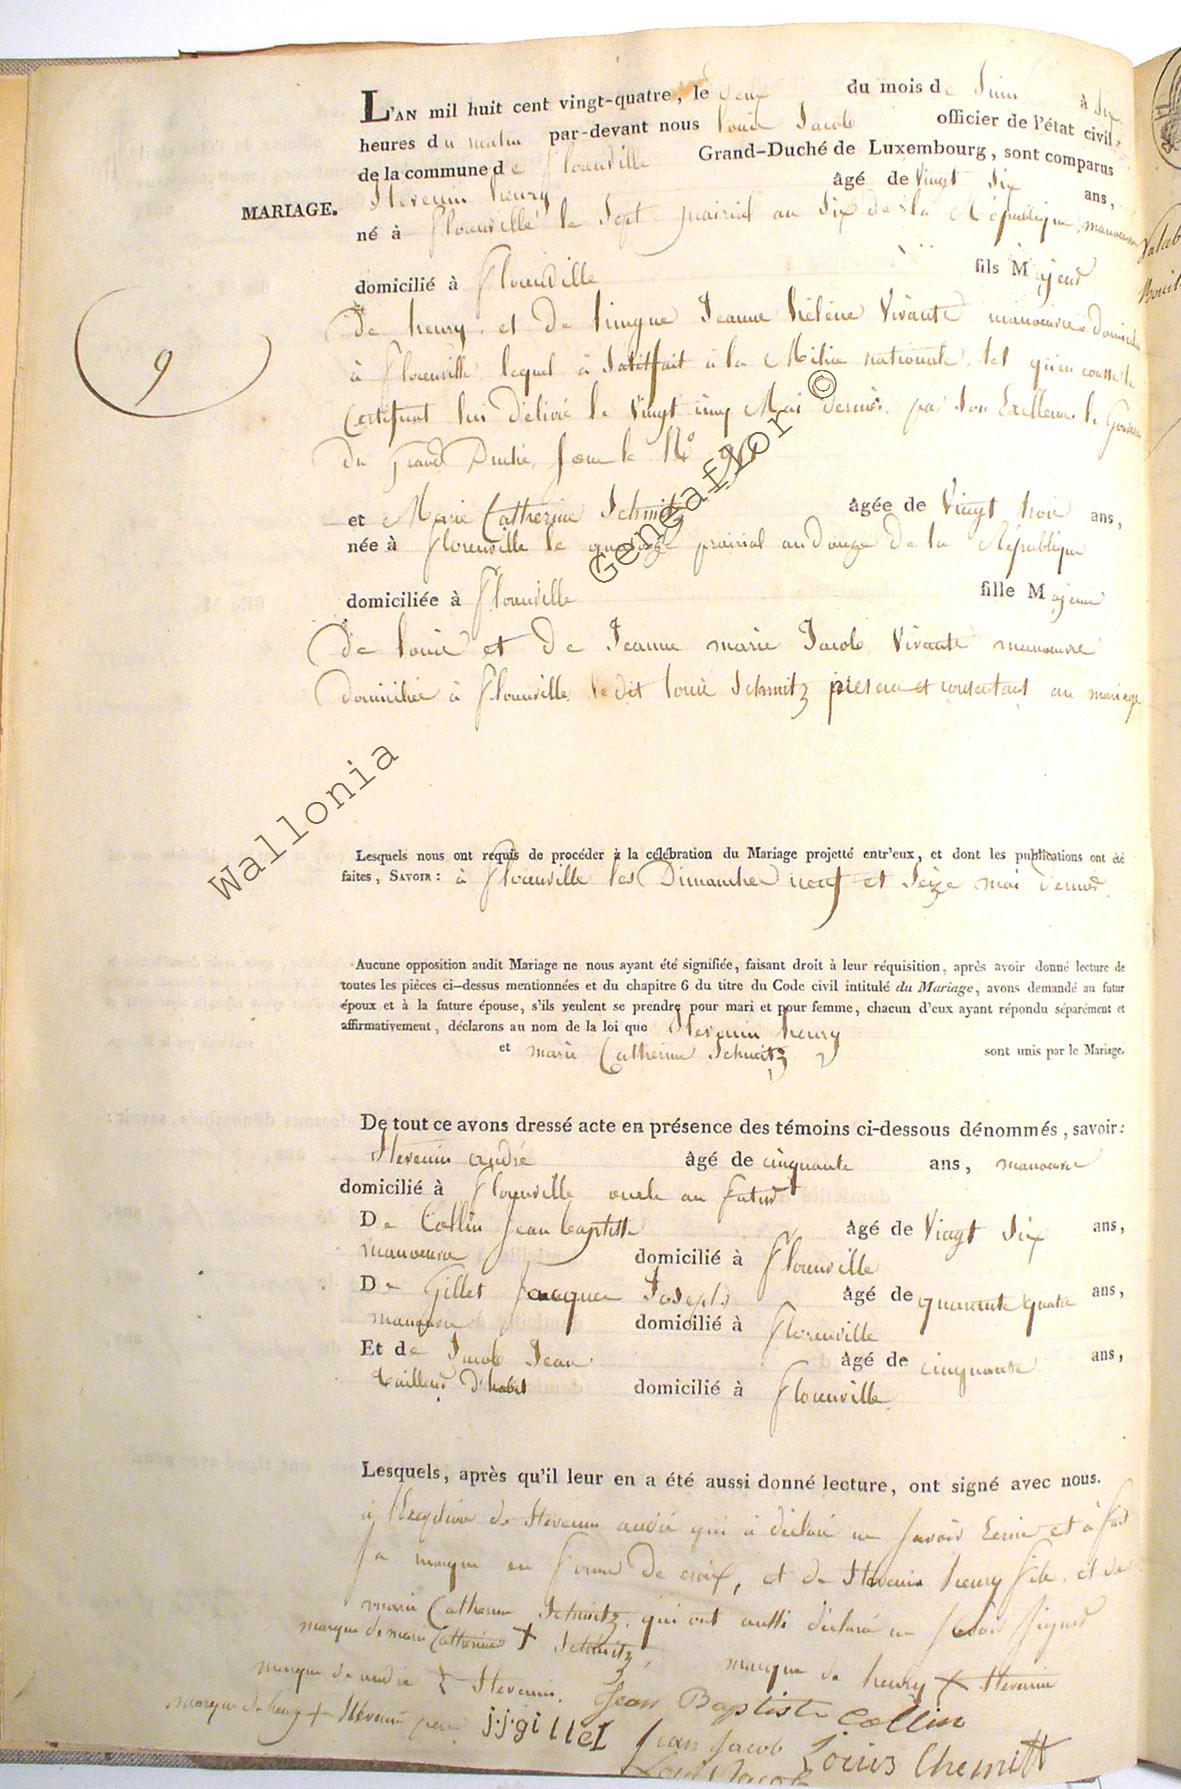 L'AN mil huit cent vingt-quatre, le deux du mois de Juin à dix
heures du matin par-devant nous Louis Jacob officier de l'état civil
de la commune de Florenville Grand-Duché de Luxembourg, sont comparus
MARIAGE. Stevenin henry âgé de vingt six ans,
né à florenville le Sept prairial an Six de la République, manoeuvre
domicilié à florenville fils Majeur
9
De henry et de Jeanne hélène Vivante manoeuvre domicilié
à florenville lequel à Satisfait à la Milice nationale tel qu'en conste le
Certificat lui délivré le Vingt cinq Mai dernier par Son Excellence le
Du Grand Duché, sous le No
et Marie Catherine Schmitz âgée de Vingt trois ans,
née à florenville le quatorze prairial an douze de la République
domiciliée à florenville fille Majeure
De Louis et De Jeanne marie Jacob Vivante manoeuvre
domiciliée à florenville le dit Louis Schmitz présent et consentant au mariage
Lesquels nous ont requis de procéder à la célébration du Mariage projetté entr'eux, et dont les publications ont été
faites, SAVOIR : à florenville les Dimanches neuf et Seize mai dernier
Aucune opposition audit Mariage ne nous ayant été signifiée, faisant droit à leur réquisition, après avoir donné lecture de
toutes les pièces ci-dessus mentionnées et du chapitre 6 du titre du Code civil intitulé du Mariage, avons demandé au futur
époux et à la future épouse, s'ils veulent se prendre pour mari et pour femme, chacun d'eux ayant répondu séparément et
affirmativement, déclarons au nom de la loi que Stevenin henry
et marie Catherine Schmitz sont unis par le Mariage.
De tout ce avons dressé acte en présence des témoins ci-dessous dénommés, savoir :
Stevenin andré âgé de cinquante ans, manoeuvre
domicilié à florenville oncle au futur
De Collin jean baptiste âgé de Vingt Six ans,
manoeuvre domicilié à florenville
De Gillet jacques Joseph âgé de quarante quatre ans,
manoeuvre domicilié à florenville
Et de Jacob Jean âgé de cinquante ans,
tailleur d'habit domicilié à florenville
Lesquels, après qu'il leur en a été aussi donné lecture, ont signé avec nous.
à l'Exception de Stevenin andré qui à déclaré ne Savoir Ecrire et à fait
Sa marque en forme De croix, et de Stevenin henry fils, et de
marie Catherine Schmitz qui ont aussi déclaré ne Savoir Signer
marque de marie Catherine + Schmitz marque de henry + Stevenin
marque de andré + Stevenin. Jean Baptiste Collin
marque de henry + Stevenin père j.j.gillet Jean Jacob Louis Chemitt
Louis Jacob
Wallonia
Geneaflor ©